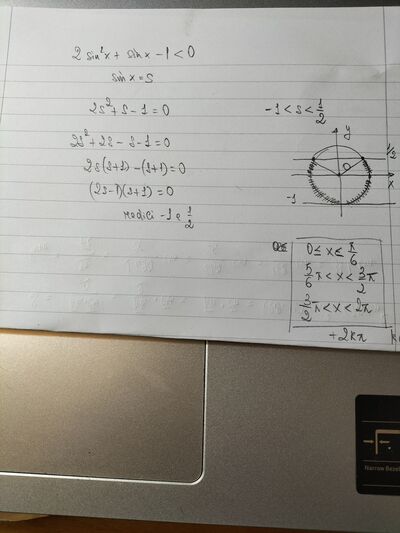 2 sin²x + sin x - 1 < 0
sin x = s
2s² + s - 1 = 0
2s² + 2s - s - 1 = 0
2s(s+1) - (s+1) = 0
(2s-1)(s+1) = 0
radici -1 e 1/2
-1 < s < 1/2
y
1/2
x
-1
0 ≤ x ≤ π/6
5/6 π < x < 3/2 π
3/2 π < x < 2π
+2kπ
Narrow Bezel